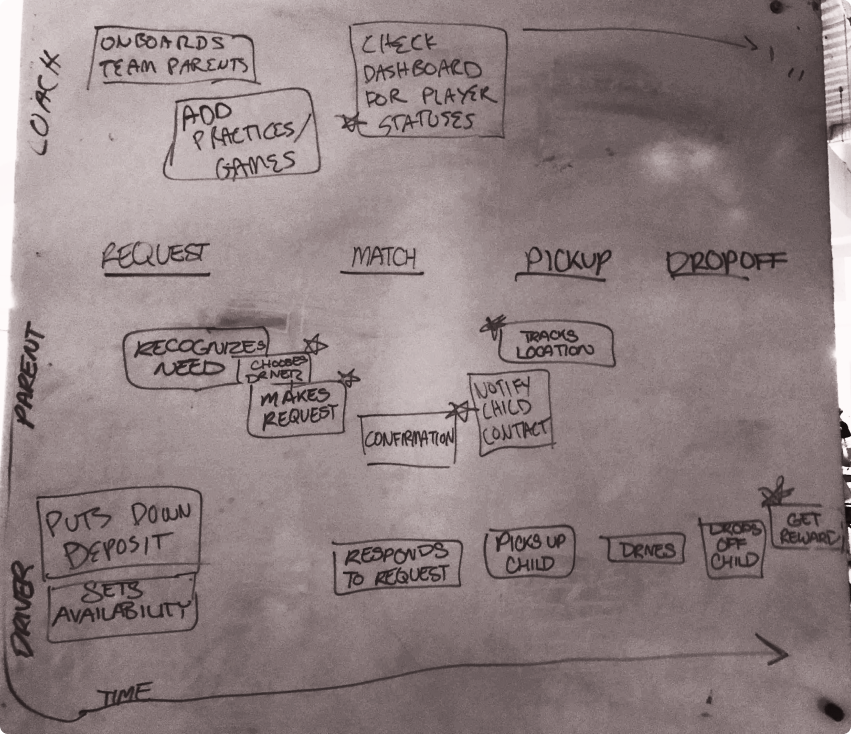 COACH
ONBOARDS
TEAM PARENTS
ADD
PRACTICES/
GAMES
CHECK
DASHBOARD
FOR PLAYER
STATUSES
REQUEST
MATCH
PICKUP
DROPOFF
PARENT
RECOGNIZES
NEED
CHOOSES
DRIVER
MAKES
REQUEST
CONFIRMATION
TRACKS
LOCATION
NOTIFY
CHILD
CONTACT
DRIVER
PUTS DOWN
DEPOSIT
SETS
AVAILABILITY
RESPONDS
TO REQUEST
PICKS UP
CHILD
DRIVES
DROPS
OFF
CHILD
GET
REWARD
TIME